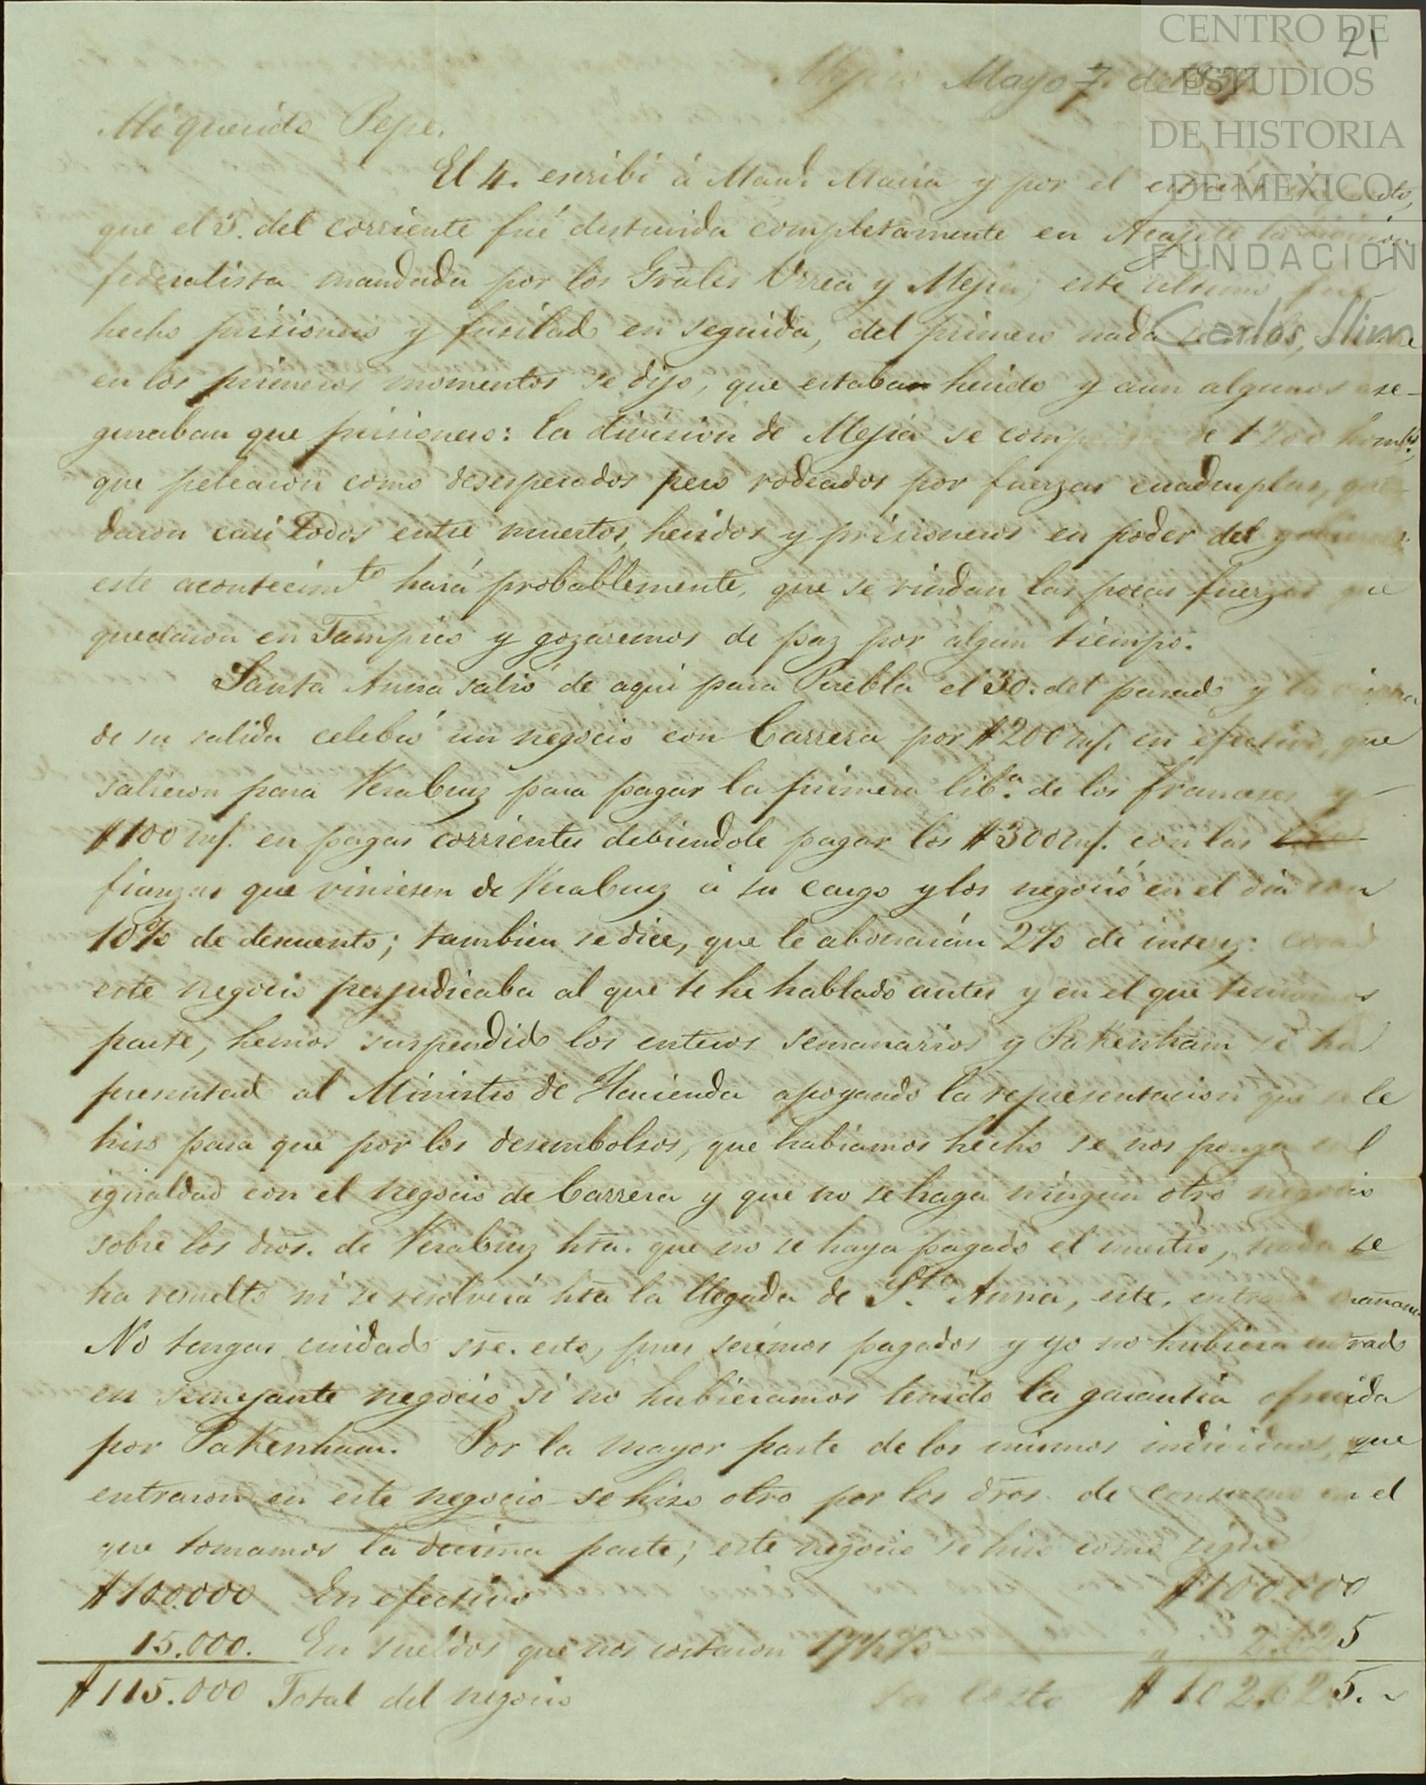 CENTRO DE
ESTUDIOS
DE HISTORIA
DE MEXICO
FUNDACIÓN
Carlos Slim
21
Mejico Mayo 7. de
Mi querido Pepe.
El 4. escribi á Man.l Maria y por el
que el 3. del corriente fué destruida completamente en Acajete la division
federalista mandada por los Grãles Urrea y Mejia; este ultimo fue
hecho prisionero y fusilado en seguida, del primero nada
en los primeros momentos se dijo, que estaban herido y aun algunos ase-
guraban que prisionero: la division de Mejia se componia de 1200 homb.s
que pelearon como desesperados pero rodeados por fuerzas cuadruplas, que-
daron casi todos entre muertos, heridos y prisioneros en poder del gobierno:
este acontecim.to hará probablemente, que se rindan las pocas fuerzas que
quedaron en Tampico y gozaremos de paz por algun tiempo.
Santa Anna salió de aqui para Puebla el 30. del pasado y la vispera
de su salida celebró un negocio con Carrera por $200 mf. en efectivo, que
salieron para VeraCruz para pagar la primera lib.a de los franceses y
$100 mf. en pagas corrientes debiendole pagar los $300 mf. con las
fianzas que viniesen de VeraCruz á su cargo y los negoció en el dia con
10% de descuento; tambien se dice, que le abonarán 2% de interez: como
este negocio perjudicaba al que te he hablado antes y en el que tenemos
parte, hemos suspendido los enteros semanarios y Pakenham se ha
presentado al Ministro de Hacienda apoyando la representacion que se le
hiso para que por los desembolsos, que habiamos hecho se nos ponga en
igualdad con el negocio de Carrera y que no se haga ningun otro negocio
sobre los dros. de VeraCruz hta. que no se haya pagado el nuestro, nada se
ha resuelto ni se resolverá hta la llegada de S.ta Anna, este, entrará mañana
No tengas cuidado sre. esto, pues serémos pagados y yo no hubiera entrado
en semejante negocio si no hubieramos tenido la garantia ofrecida
por Pakenham. Por la mayor parte de los mismos individuos, que
entraron en este negocio se hiso otro por los dros. de consumo en el
que tomamos la decima parte; este negocio se hiso como sigue
$100.000 En efectivo $100.000
15.000. En sueldos que nos costaron 17½% " 2.625
$115.000 Total del negocio su costo $102.625.